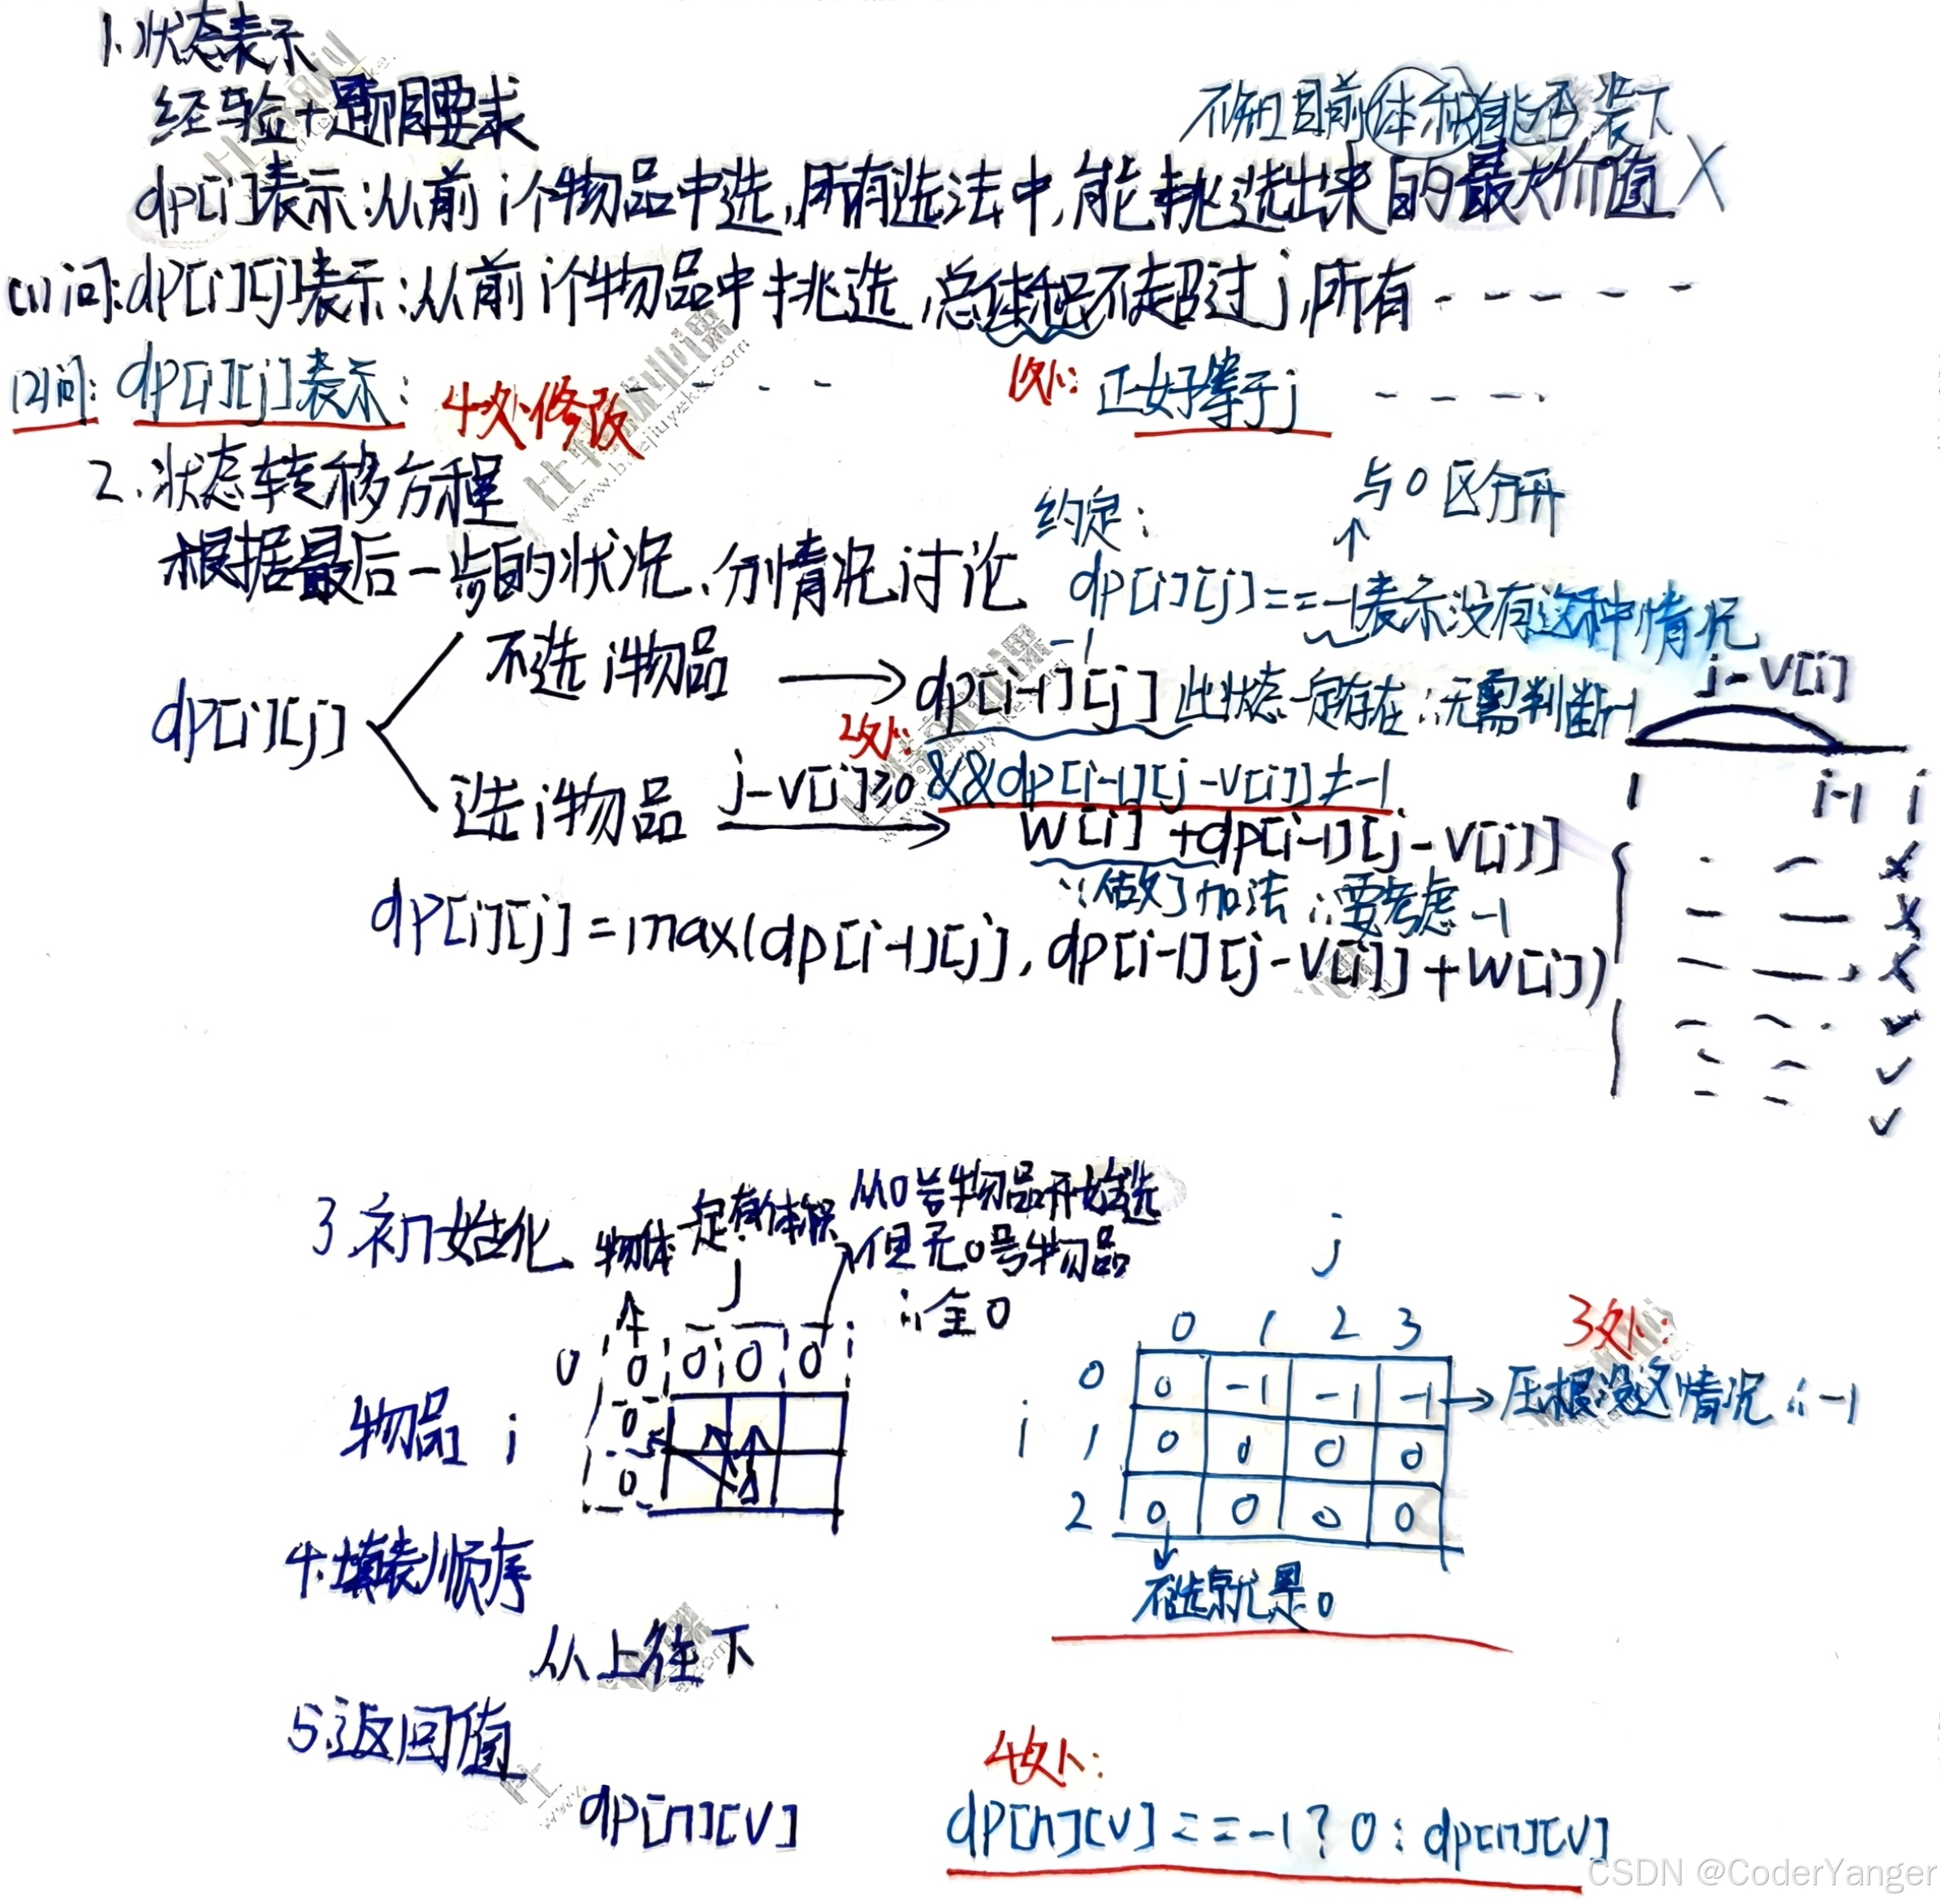 1.状态表示
经验+题目要求
不知目前体积能否装下
dp[i]表示:从前i个物品中选,所有选法中,能挑选出来的最大价值 X
(1)问:dp[i][j]表示:从前i个物品中挑选,总体积不超过j,所有-----
(2)问:dp[i][j]表示: --- 1处:正好等于j ----
4处修改
2.状态转移方程
与0区分开
约定:
根据最后一步的状况,分情况讨论
dp[i][j]==-1表示没有这种情况
不选i物品
-1
dp[i-1][j] 此状态一定存在∴无需判断-1
j-V[i]
dp[i][j]
2处:
选i物品 j-V[i]≥0 &&dp[i-1][j-V[i]]≠-1
1 i-1 i
W[i]+dp[i-1][j-V[i]]
∵做了加法∴要考虑-1
dp[i][j]=max(dp[i-1][j],dp[i-1][j-V[i]]+W[i])
3.初始化
物体一定有体积
从0号物品开始选
但无0号物品
∴全0
j
0 0 0 0 0
物品 i
0
0
j
0 1 2 3
3处:
0 0 -1 -1 -1 →压根没这情况∴-1
i 1 0 0 0 0
2 0 0 0 0
不选就是0
4.填表顺序
从上往下
5.返回值
dp[n][V]
4处:
dp[n][V]==-1?0:dp[n][V]
CSDN @CoderYanger